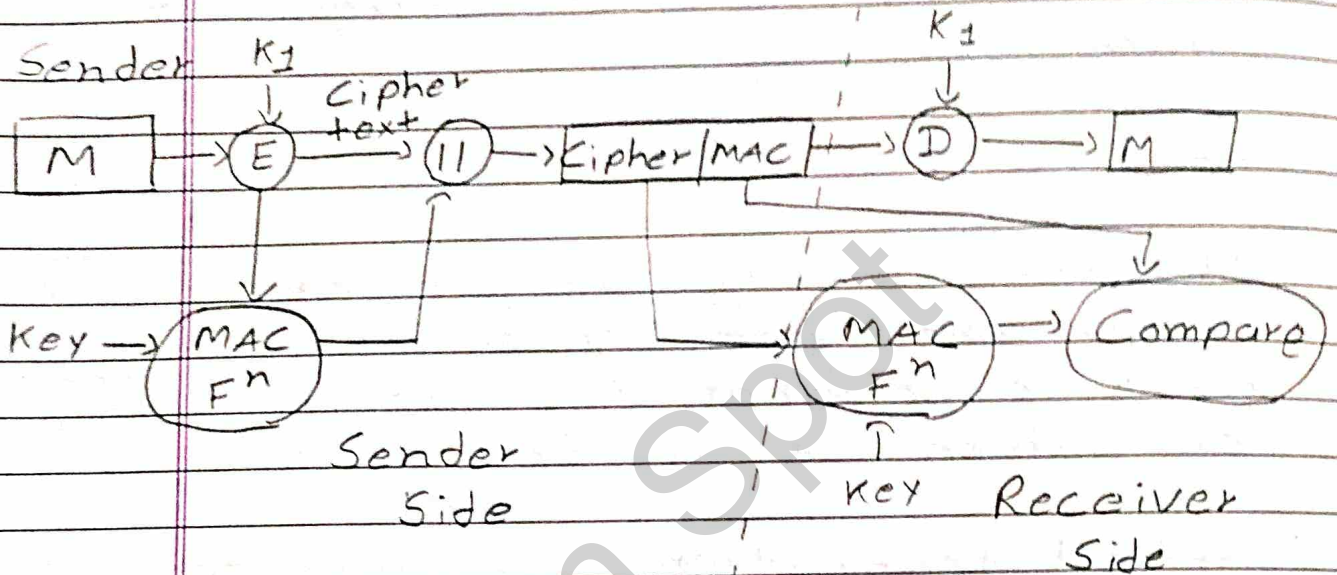 Sender K1 K1
Cipher
text
M E || Cipher MAC D M
Key MAC MAC Compare
Fn Fn
Sender
Side
Key Receiver
Side
n Spot